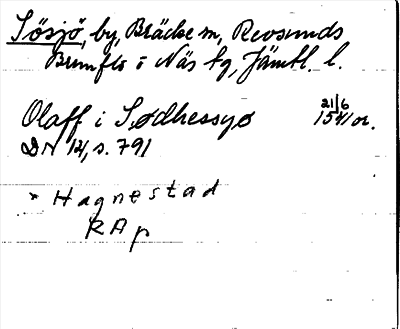 Sösjö, by, Bräcke sn, Revsunds
Brunflo o Näs tg, Jämtl. l.
Olaff i Sødhessyø 21/6 1541 or.
DN 14, s. 791
" Hagnestad
RAp